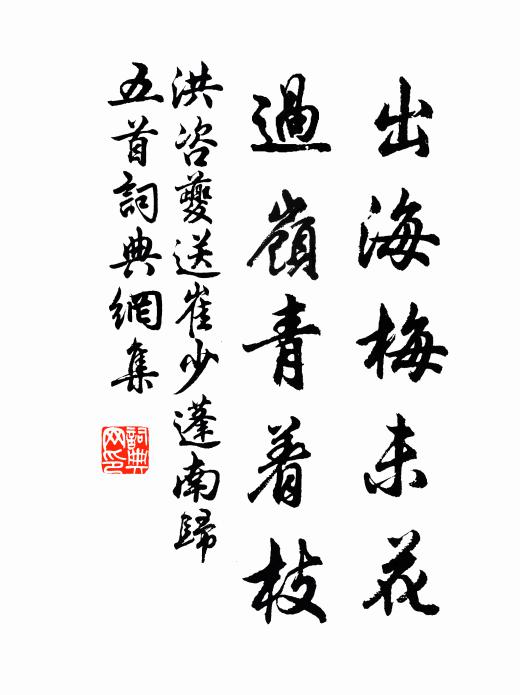 出海梅未花
過嶺青着枝
洪咨夔送崔少蓬南歸
五首詞典網集
詞典
网印